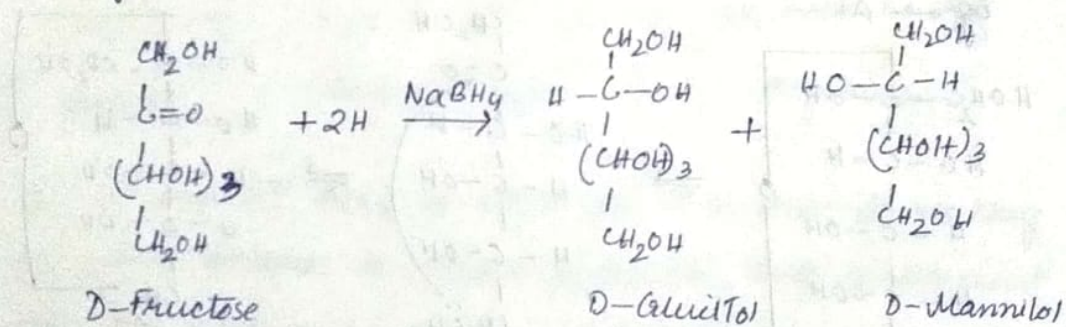 CH2OH
C=O
(CHOH)3
CH2OH
D-Fructose
+2H
NaBH4
CH2OH
H-C-OH
(CHOH)3
CH2OH
D-GluilTol
+
CH2OH
HO-C-H
(CHOH)3
CH2OH
D-Mannilol